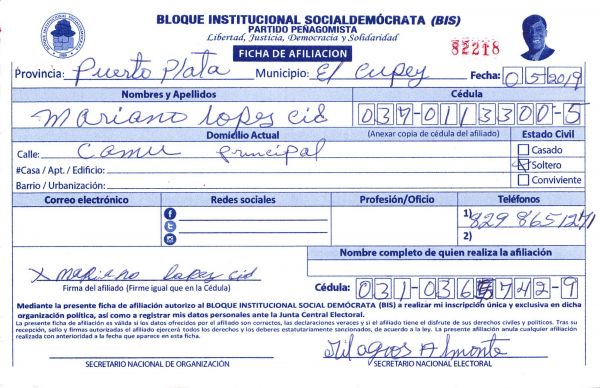 BLOQUE INSTITUCIONAL SOCIALDEMÓCRATA (BIS)
PARTIDO PEÑAGOMISTA
Libertad, Justicia, Democracia y Solidaridad
FICHA DE AFILIACION
82218
Provincia: Puerto Plata Municipio: El Cupey Fecha: 052019
Nombres y Apellidos Cédula
Mariano Lopes cid 037-0113300-5
Domicilio Actual (Anexar copia de cédula del afiliado) Estado Civil
Calle: Camu principal Casado
#Casa / Apt. / Edificio: Soltero
Barrio / Urbanización: Conviviente
Correo electrónico Redes sociales Profesión/Oficio Teléfonos
1) 829 865 1271
2)
Nombre completo de quien realiza la afiliación
X Mariano Lopes cid
Firma del afiliado (Firme igual que en la Cédula) Cédula: 031-0365742-9
Mediante la presente ficha de afiliación autorizo al BLOQUE INSTITUCIONAL SOCIAL DEMÓCRATA (BIS) a realizar mi inscripción única y exclusiva en dicha
organización política, así como a registrar mis datos personales ante la Junta Central Electoral.
La presente ficha de afiliación es válida si los datos ofrecidos por el afiliado son correctos, las declaraciones veraces y si el afiliado tiene el disfrute de sus derechos civiles y políticos. Tras su
recepción, sello y firmas autorizadas el afiliado ejercerá todos los derechos y los deberes estatutariamente sancionados, de acuerdo a la ley. La presente afiliación anula cualquier afiliación
realizada con anterioridad a la fecha que aparece en esta ficha.
Milagros Almonte
SECRETARIO NACIONAL DE ORGANIZACIÓN SECRETARIO NACIONAL ELECTORAL